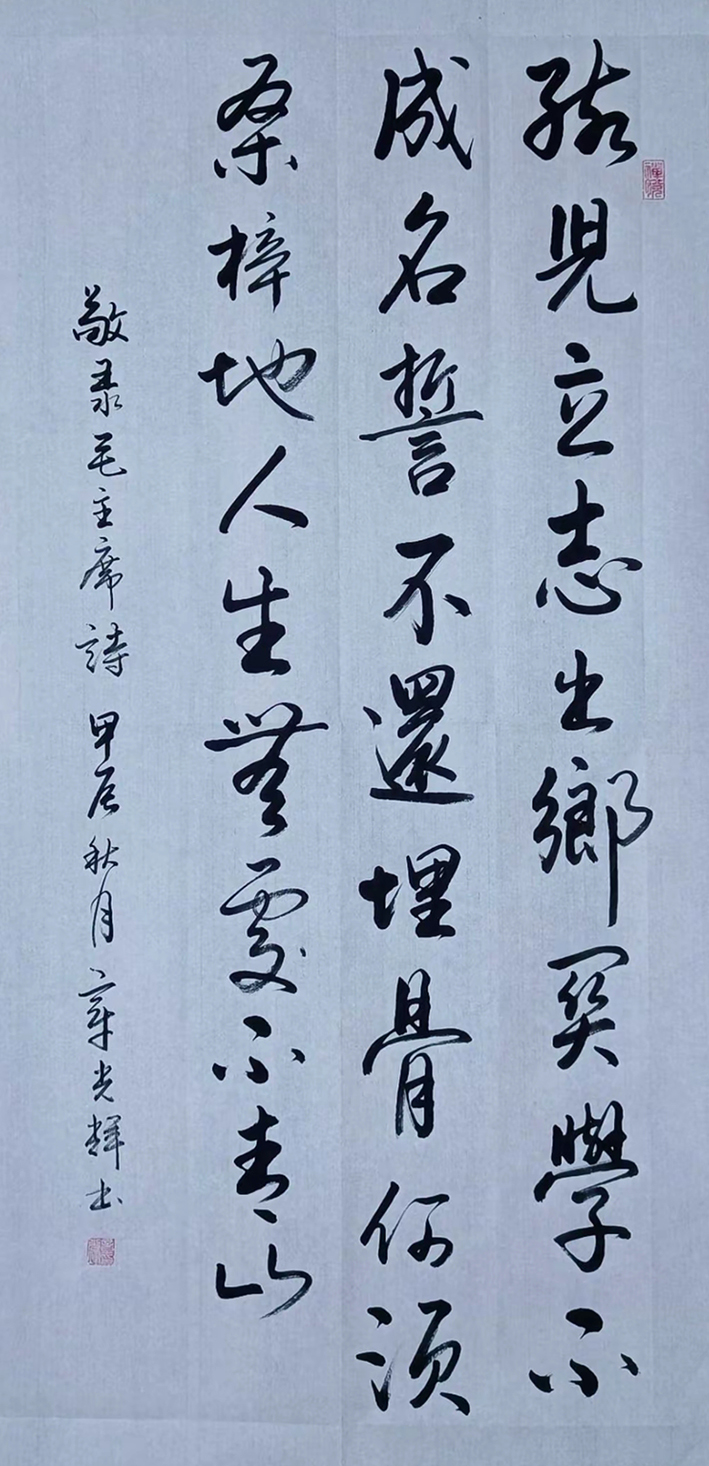 孩兒立志出鄉関學不
成名誓不還埋骨何須
桑梓地人生無處不青山
敬录毛主席詩甲辰秋月章光輝书